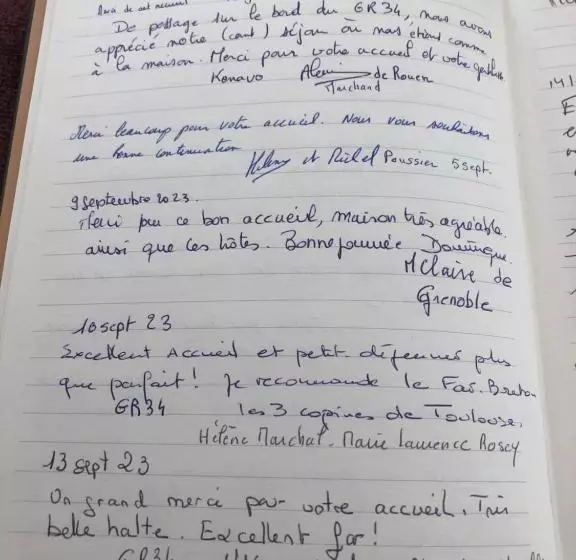 De passage sur le bord du GR34, nous avons
apprécié notre (court) séjour où nous étions comme
à la maison. Merci pour votre accueil et votre gentillesse
Kenavo Alain de Rouen
Marchand
Merci beaucoup pour votre accueil. Nous vous souhaitons
une bonne continuation
et Poussier 5 sept.
9 Septembre 2023.
Merci pour ce bon accueil, maison très agréable.
ainsi que les hôtes. Bonne journée Dominique
M Claire de
Grenoble
10 sept 23
Excellent Accueil et petit-déjeuner plus
que parfait! Je recommande le Far. Breton
GR34 les 3 copines de Toulouse.
Hélène Marchal. Marie Laurence Roscy
13 sept 23
Un grand merci pour votre accueil. Très
belle halte. Excellent far!
GR34